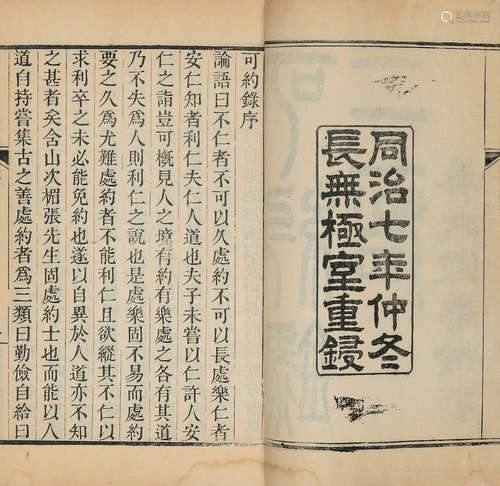 同治七年仲冬
長無極室重鋟
可約錄序
論語曰不仁者不可以久處約不可以長處樂仁者
安仁知者利仁夫仁人道也夫子未嘗以仁許人安
仁之詣豈可概見人之境有約有樂處之各有其道
乃不失爲人則利仁之說也是處樂固不易而處約
要之久爲尤難處約者不能利仁且欲縱其不仁以
求利卒之未必能免約也遂以自異於人道亦不知
之甚者矣含山次張先生固處約士也而能以人
道自持嘗集古之善處約者爲三類曰勤儉自給曰